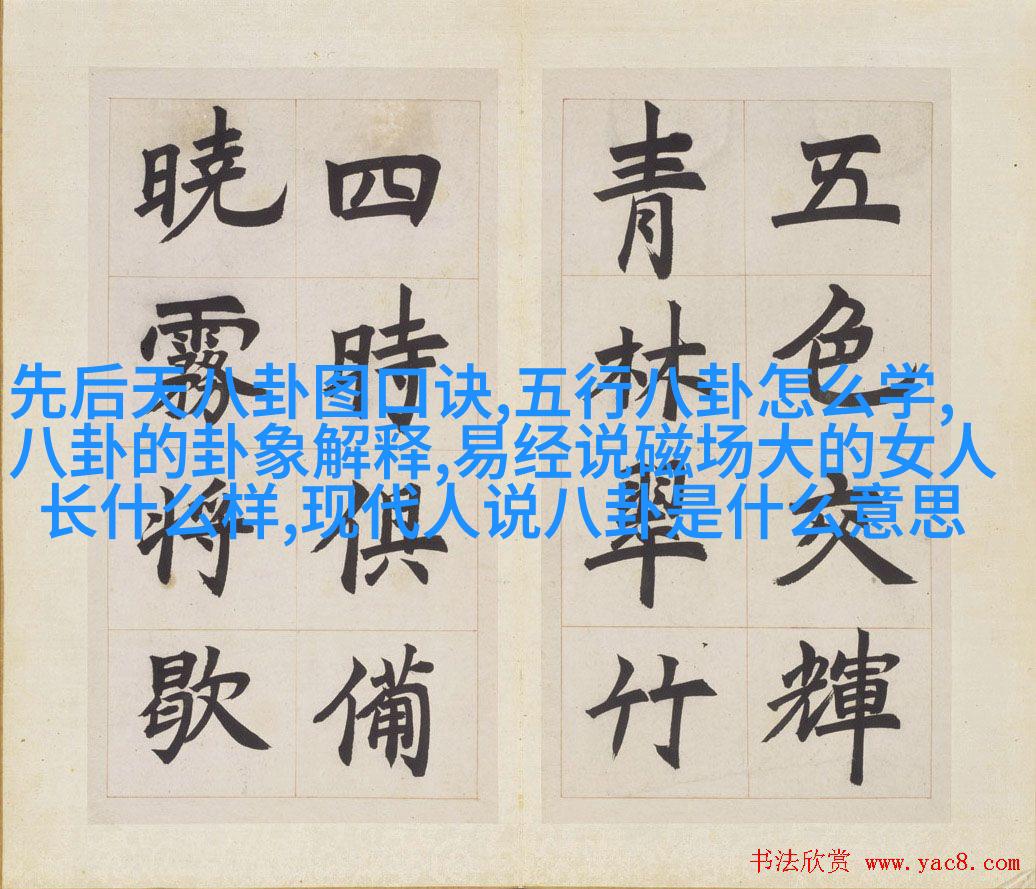 五色交輝
青林翠竹
四時俱備
曉霧將歇
先后天八卦图口诀,五行八卦怎么学,
八卦的卦象解释,易经说磁场大的女人
长什么样,现代人说八卦是什么意思
书法欣赏 www.yac8.com